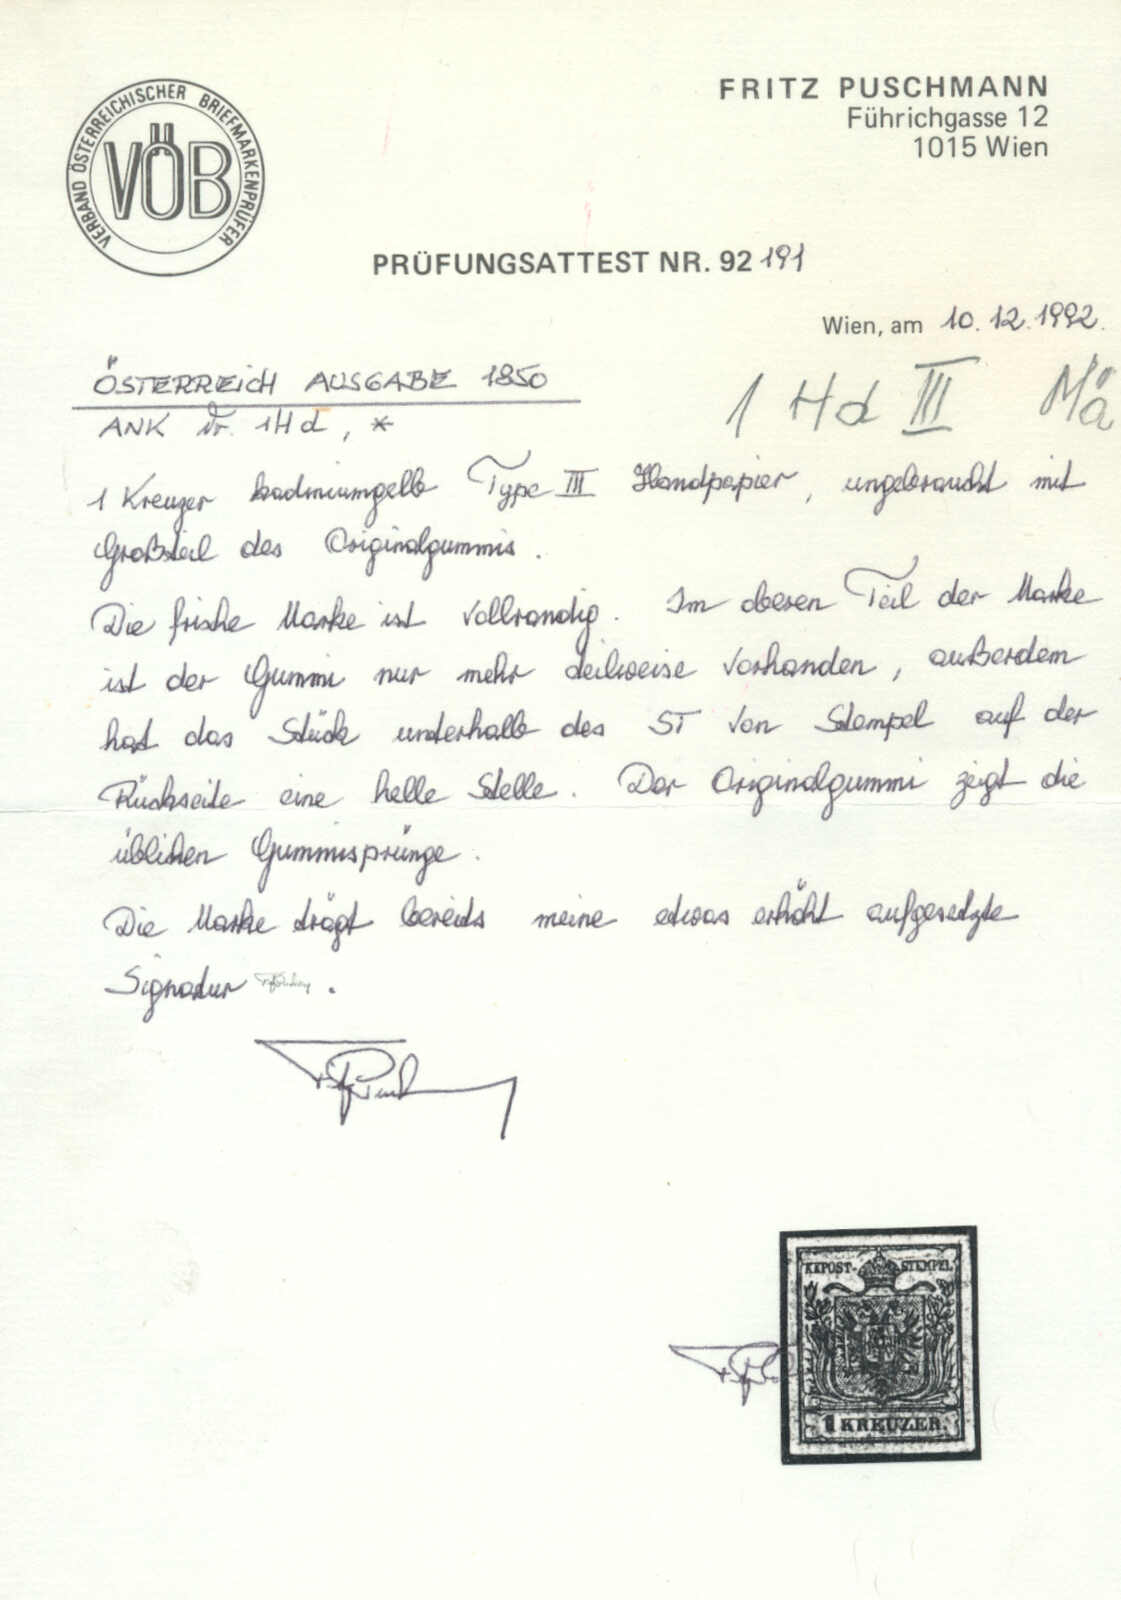 VERBAND ÖSTERREICHISCHER BRIEFMARKENPRÜFER
VÖB
FRITZ PUSCHMANN
Führichgasse 12
1015 Wien
PRÜFUNGSATTEST NR. 92 191
Wien, am 10.12.1992.
ÖSTERREICH AUSGABE 1850
ANK Nr. 1Hd, *
1 Hd III Mä
1 Kreuzer kadmiumgelb Type III Handpapier, ungebraucht mit
Großteil des Originalgummis.
Die frische Marke ist vollrandig. Im oberen Teil der Marke
ist der Gummi nur mehr teilweise vorhanden, außerdem
hat das Stück unterhalb des ST von Stempel auf der
Rückseite eine helle Stelle. Der Originalgummi zeigt die
üblichen Gummisprünge.
Die Marke trägt bereits meine etwas erhöht aufgesetzte
Signatur .
KKPOST-STEMPEL
1 KREUZER.